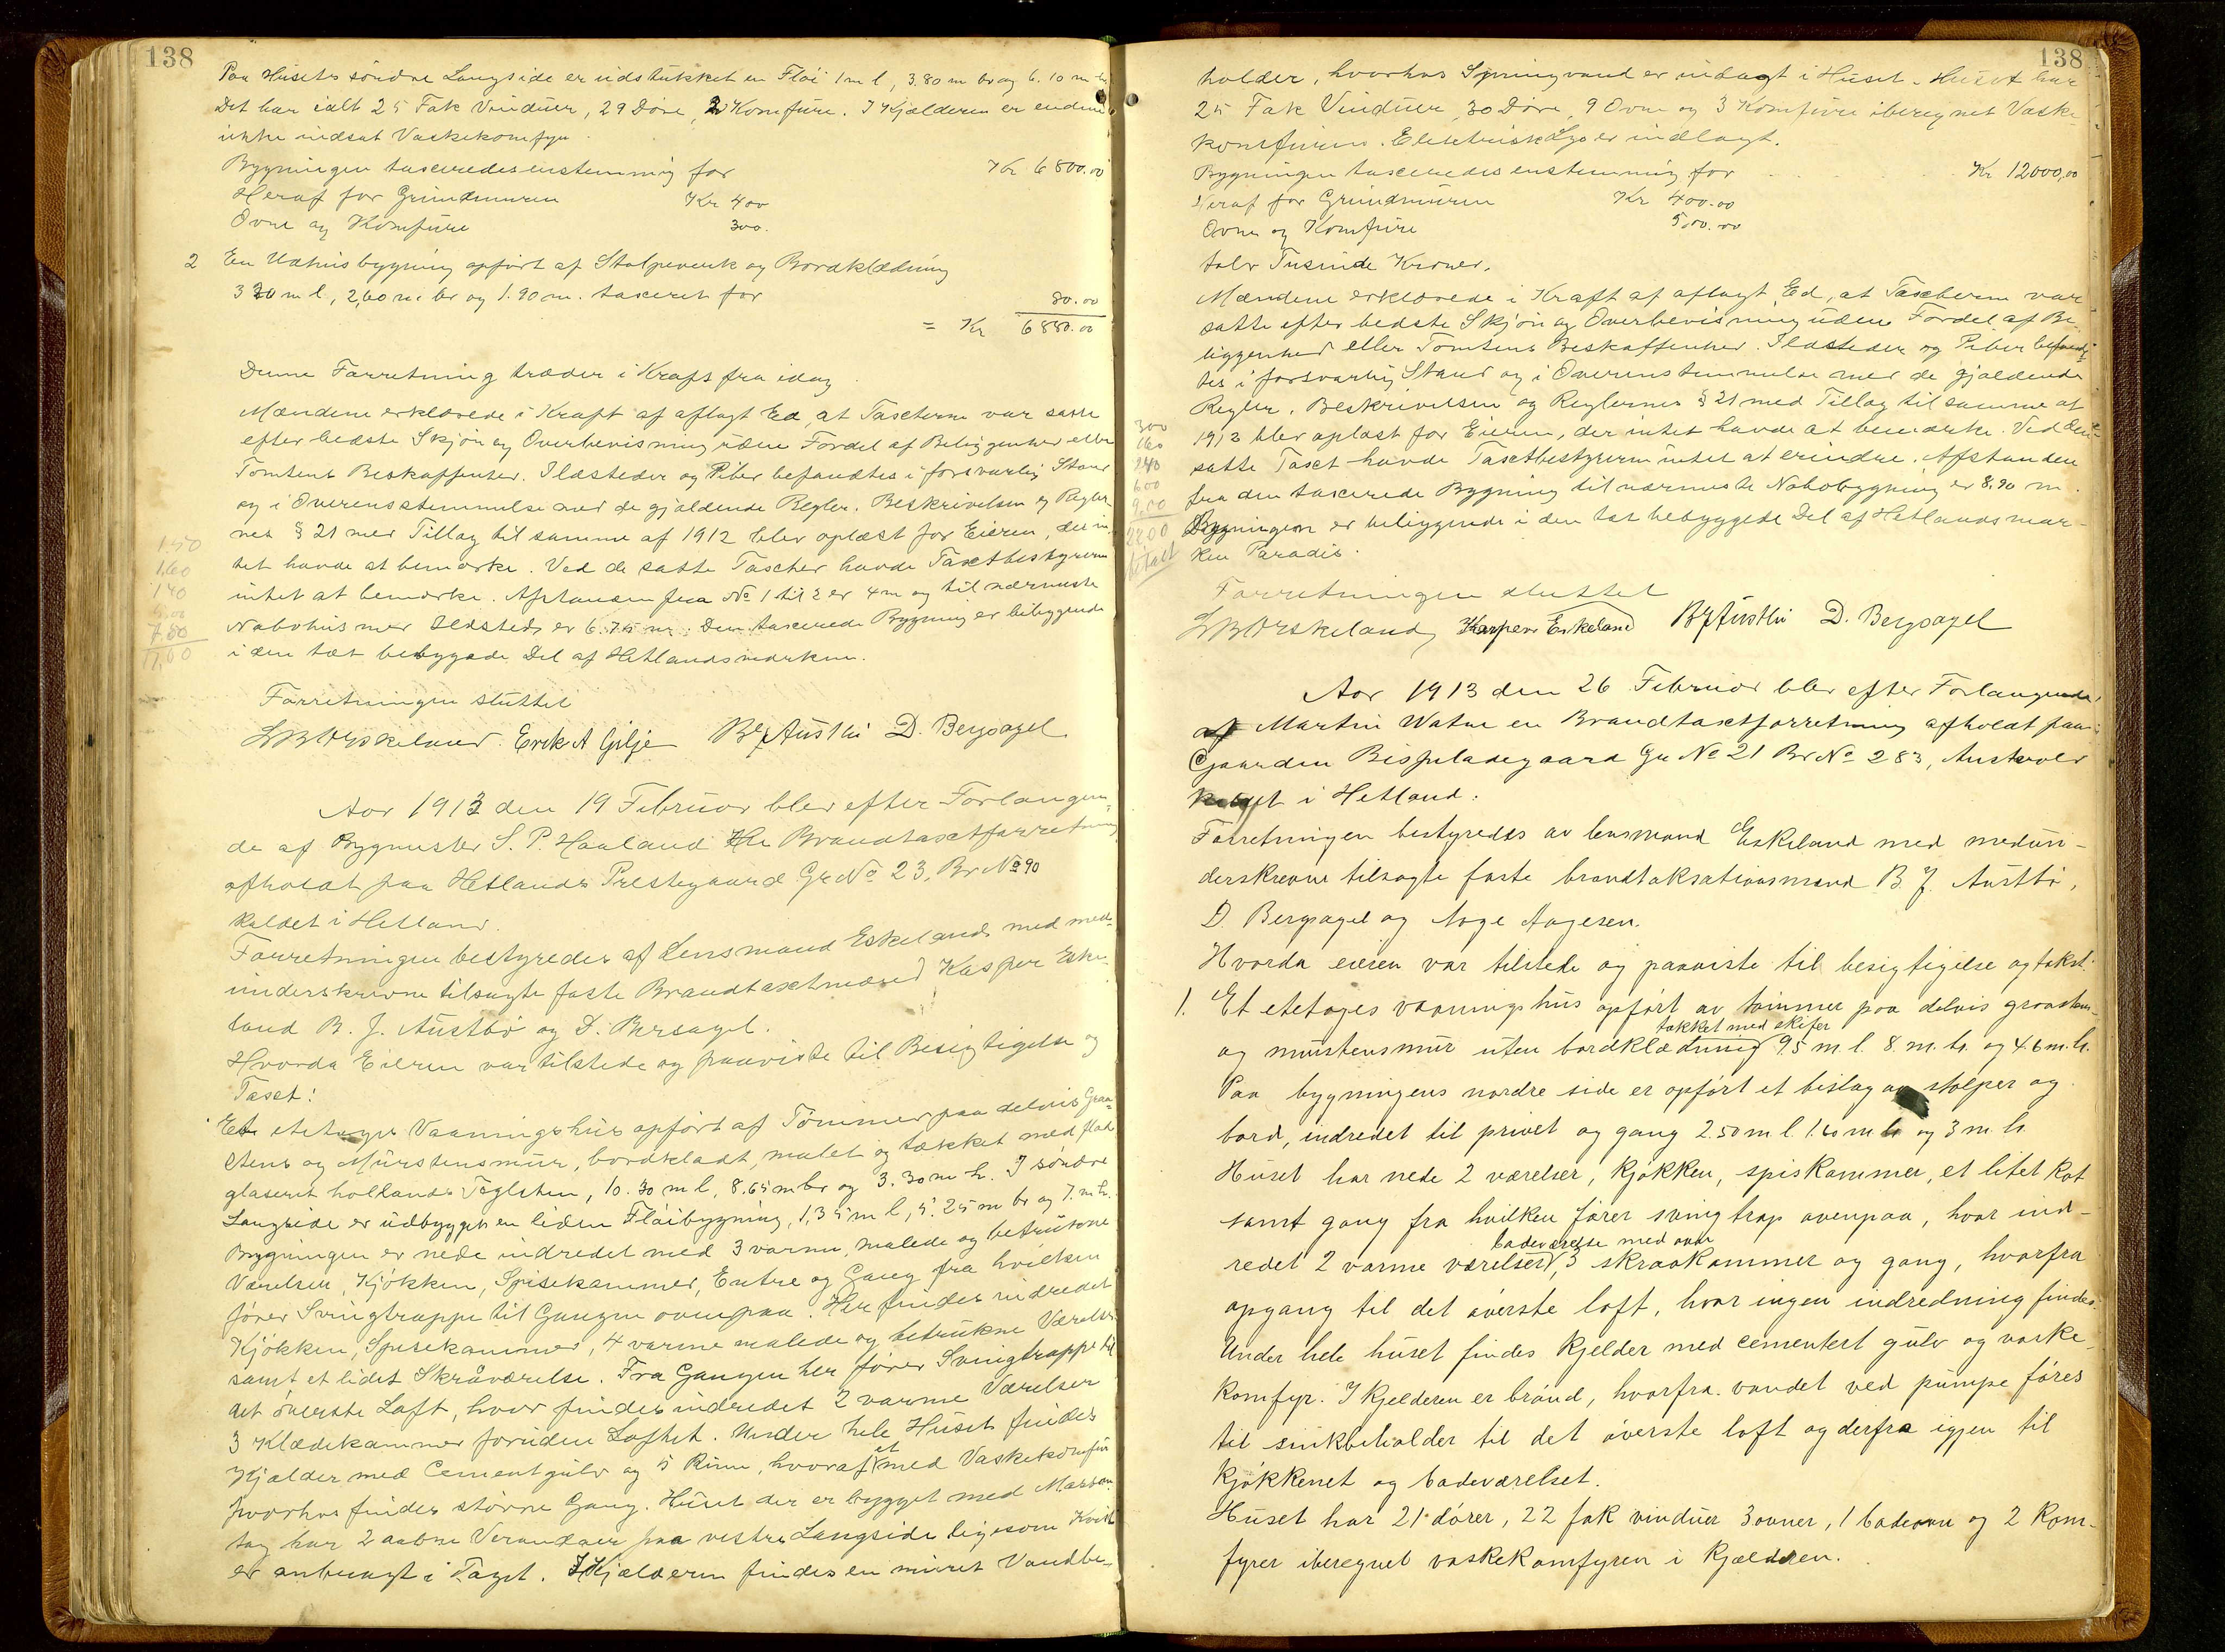 138
Paa Husets söndre Langside er udstukket en Flöi 1 m l, 3.80 m br og 6.10 m h
Det har ialt 25 Fak Vinduer, 29 Döre, 2 Komfure. I Kjælderen er endnu
ikke indsat Vaskekomfyr
Bygningen taxeredes enstemmig for Kr 6800.00
Heraf for Grundmuren Kr 400
Ovne og Komfure 300.
2 En Udhusbygning opfört af Stolpeverk og Bordklædning
330 m l, 2,60 m br og 1.90 m. taxeret for 80.00
= Kr 6880.00
Denne Forretning træder i Kraft fra idag
Mændene erklærede i Kraft af aflagt Ed, at Taxterne var satte
efter bedste Skjön og Overbevisning uden Fordel af Beliggenhed eller
Tomtens Beskaffenhed. Ildsteder og Piber befandtes i forsvarlig Stand
og i Overensstemmelse med de gjældende Regler. Beskrivelsen og Regler-
nes § 21 med Tillæg til samme af 1912 blev oplæst for Eieren, der in-
tet havde at bemærke. Ved de satte Taxter havde Taxtbestyreren
intet at bemærke. Afstanden fra No 1 til 2 er 4 m og til nærmeste
Nabohus med Ildsted er 6.75 m. Den taxerede Bygning er beliggende
i den tæt bebyggede Del af Hetlandsmarken.
1.50
1,60
1.40
5.00
7.50
17,00
Forretningen sluttet
LB Eskeland. Erik A Gilje B J Austbö D. Bergsagel
Aar 1913 den 19 Februar blev efter Forlangen-
de af Bygmester S. P. Haaland Hle Brandtaxtforretning
afholdt paa Hetlands Prestegaard Gr No 23, Br No 90
kaldet i Hetland.
Forretningen bestyredes af Lensmand Eskeland med med-
underskrevne tilsagte faste Brandtaxtmænd Kasper Eske-
land B. J. Austbö og D. Bersagel.
Hvorda Eieren var tilstede og paaviste til Besigtigelse og
Taxt:
Et etetages Vaaningshus opfört af Tömmer paa delvis Graa-
stens og Murstensmur, bordklædt, malet og tækket med flad
glaseret hollandsk Taglsten, 10.30 m l, 8.65 m br og 3.30 m h. I söndre
Langside er udbygget en liden Flöibygning, 1,35 m l, 5.25 m br og 7. m h.
Bygningen er nede indredet med 3 varme, malede og betrukne
Værelser, Kjökken, Spisekammer, Entre og Gang fra hvilken
förer Svingtrappe til Gangen ovenpaa. Her findes indredet
Kjökken, Spisekammer, 4 varme malede og betrukne Værelser
samt et lidet Skråværelse. Fra Gangen her förer Svingtrappe til
det överste Loft, hvor findes indredet 2 varme Værelser
3 Klædekammer foruden Loftet. Under hele Huset findes
Kjælder med Cementgulv og 5 Rum, hvoraf et med Vaskekomfur
hvorhos findes större Gang. Huset der er bygget med Massa-
tag har 2 aabne Verandaer paa vestre Langside ligesom Kvist
er anbragt i Taget. I Kjælderen findes en muret Vandbe-
138
holder, hvorhos Springvand er indlagt i Huset. Huset har
25 Fak Vinduer, 30 Döre, 9 Ovne og 3 Komfure iberegnet Vaske-
komfuren. Elektrisk Lys er indlagt.
Bygningen taxeredes enstemmig for Kr 12000,00
Heraf for Grundmuren Kr 400.00
Ovne og Komfure 500.00
tolv Tusinde Kroner.
Mændene erklærede i Kraft af aflagt Ed, at Taxterne var
satte efter bedste Skjön og Overbevisning uden Fordel af Be-
liggenhed eller Tomtens Beskaffenhed. Ildsteder og Piber befand-
tes i forsvarlig Stand og i Overensstemmelse med de gjældende
Regler. Beskrivelsen og Reglernes § 21 med Tillæg til samme af
1912 blev oplæst for Eieren, der intet havde at bemærke. Ved den
satte Taxt havde Taxtbestyreren intet at erindre. Afstanden
fra den taxerede Bygning til nærmeste Nabobygning er 8,90 m.
Bygningen er beliggende i den tæt bebyggede Del af Hetlandsmar-
ken Paradis.
300
160
240
600
9.00
22.00
betalt
Forretningen sluttet
LB Eskeland Kasper Eskeland B J Austbö D. Bergsagel
Aar 1913 den 26 Februar blev efter Forlangende
af Martin Watne en Brandtaxtforretning afholdt paa
Gaarden Bispeladegaard Gr No 21 Br No 283, Austvold
kaldet i Hetland.
Forretningen bestyredes av lensmand Eskeland med medun-
derskrevne tilsagte faste brandtaksationsmænd B. J. Austbö,
D. Bergsagel og Aage Aagesen.
Hvorda eieren var tilstede og paaviste til besigtigelse og takst:
1. Et etetages vaaningshus opfört av tömmer paa delvis graastens-
og murstensmur uten bordklædning takket med skifer 9.5 m. l. 8. m. br. og 4.6 m. h.
Paa bygningens nordre side er opfört et bislag av stolper og
bord, indredet til privet og gang 2.50 m l. 1.60 m br og 3 m h.
Huset har nede 2 værelser, kjökken, spiskammer, et litet kot
samt gang fra hvilken förer svingtrap ovenpaa, hvor ind-
redet 2 varme værelser, badeværelse med ovn 3 skraakammer og gang, hvorfra
opgang til det överste loft, hvor ingen indredning findes.
Under hele huset findes kjelder med cementert gulv og vaske-
komfyr. I kjelderen er brönd, hvorfra vandet ved pumpe föres
til sinkbeholder til det överste loft og derfra igjen til
kjökkenet og badeværelset.
Huset har 21 dörer, 22 fak vinduer 3 ovner, 1 badeovn og 2 kom-
fyrer iberegnet vaskekomfyren i kjælderen.